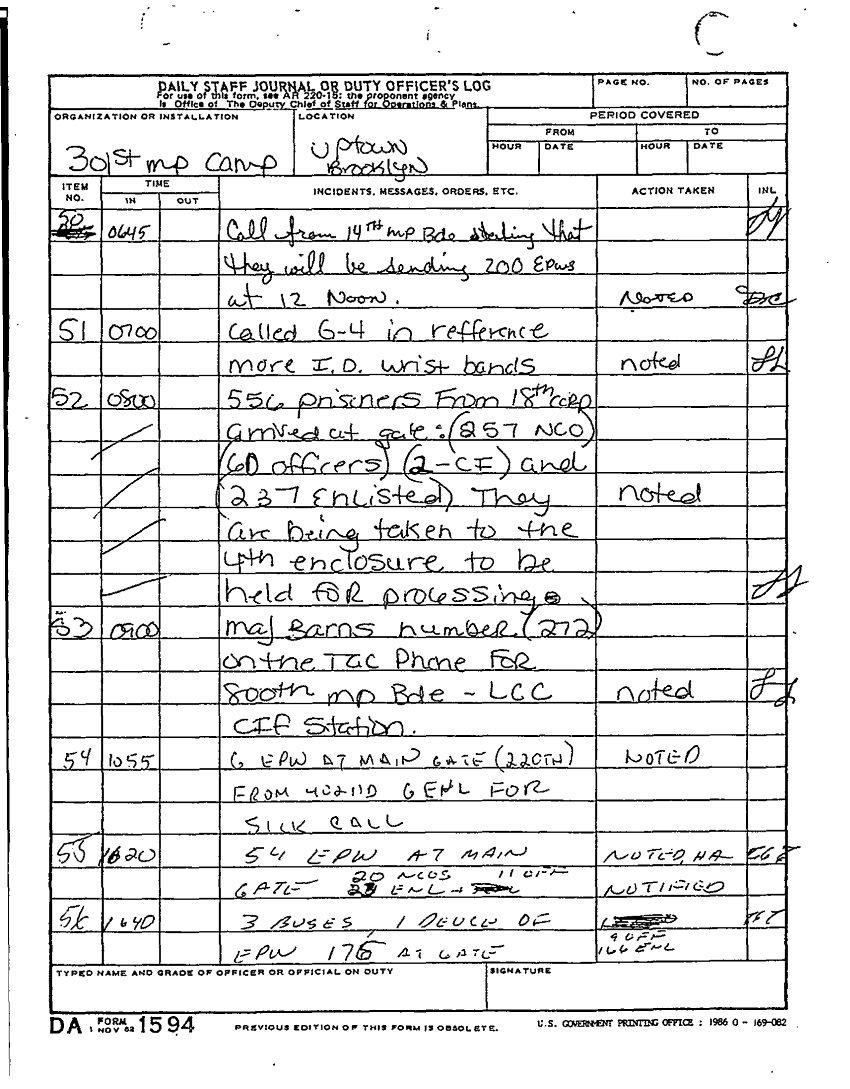 DAILY STAFF JOURNAL OR DUTY OFFICER'S LOG
For use of this form, see AR 220-15; the proponent agency
is Office of The Deputy Chief of Staff for Operations & Plans.
PAGE NO. NO. OF PAGES
ORGANIZATION OR INSTALLATION
301st mp camp
LOCATION
Uptown
Brooklyn
PERIOD COVERED
FROM TO
HOUR DATE HOUR DATE
ITEM NO. TIME INCIDENTS, MESSAGES, ORDERS, ETC. ACTION TAKEN INL
IN OUT
50 0645 Call from 14TH mp Bde stating that
they will be sending 200 EPWs
at 12 Noon. Noted
51 0700 Called G-4 in refference
more I.D. wrist bands noted
52 0800 556 prisners From 18th corp
arrived at gate: (257 NCO)
(60 officers) (2-CI) and
(237 Enlisted) They noted
are being taken to the
4th enclosure to be
held FOR processing.
53 0900 maj Barns number (272)
on the TAC Phone FOR
800th mp Bde - LCC noted
CIF Station.
54 1055 6 EPW AT MAIN GATE (220TH) NOTED
FROM 402 MP 6 ENL FOR
SICK CALL
55 1620 54 EPW AT MAIN NOTED, HA
GATE 20 NCOS 11 OFF
23 ENL NOTIFIED
56 1640 3 BUSES, 1 DEUCE OF
EPW 175 AT GATE 9 OFF
166 ENL
TYPED NAME AND GRADE OF OFFICER OR OFFICIAL ON DUTY SIGNATURE
DA FORM 1594
1 NOV 62
PREVIOUS EDITION OF THIS FORM IS OBSOLETE.
U.S. GOVERNMENT PRINTING OFFICE : 1986 O - 169-082